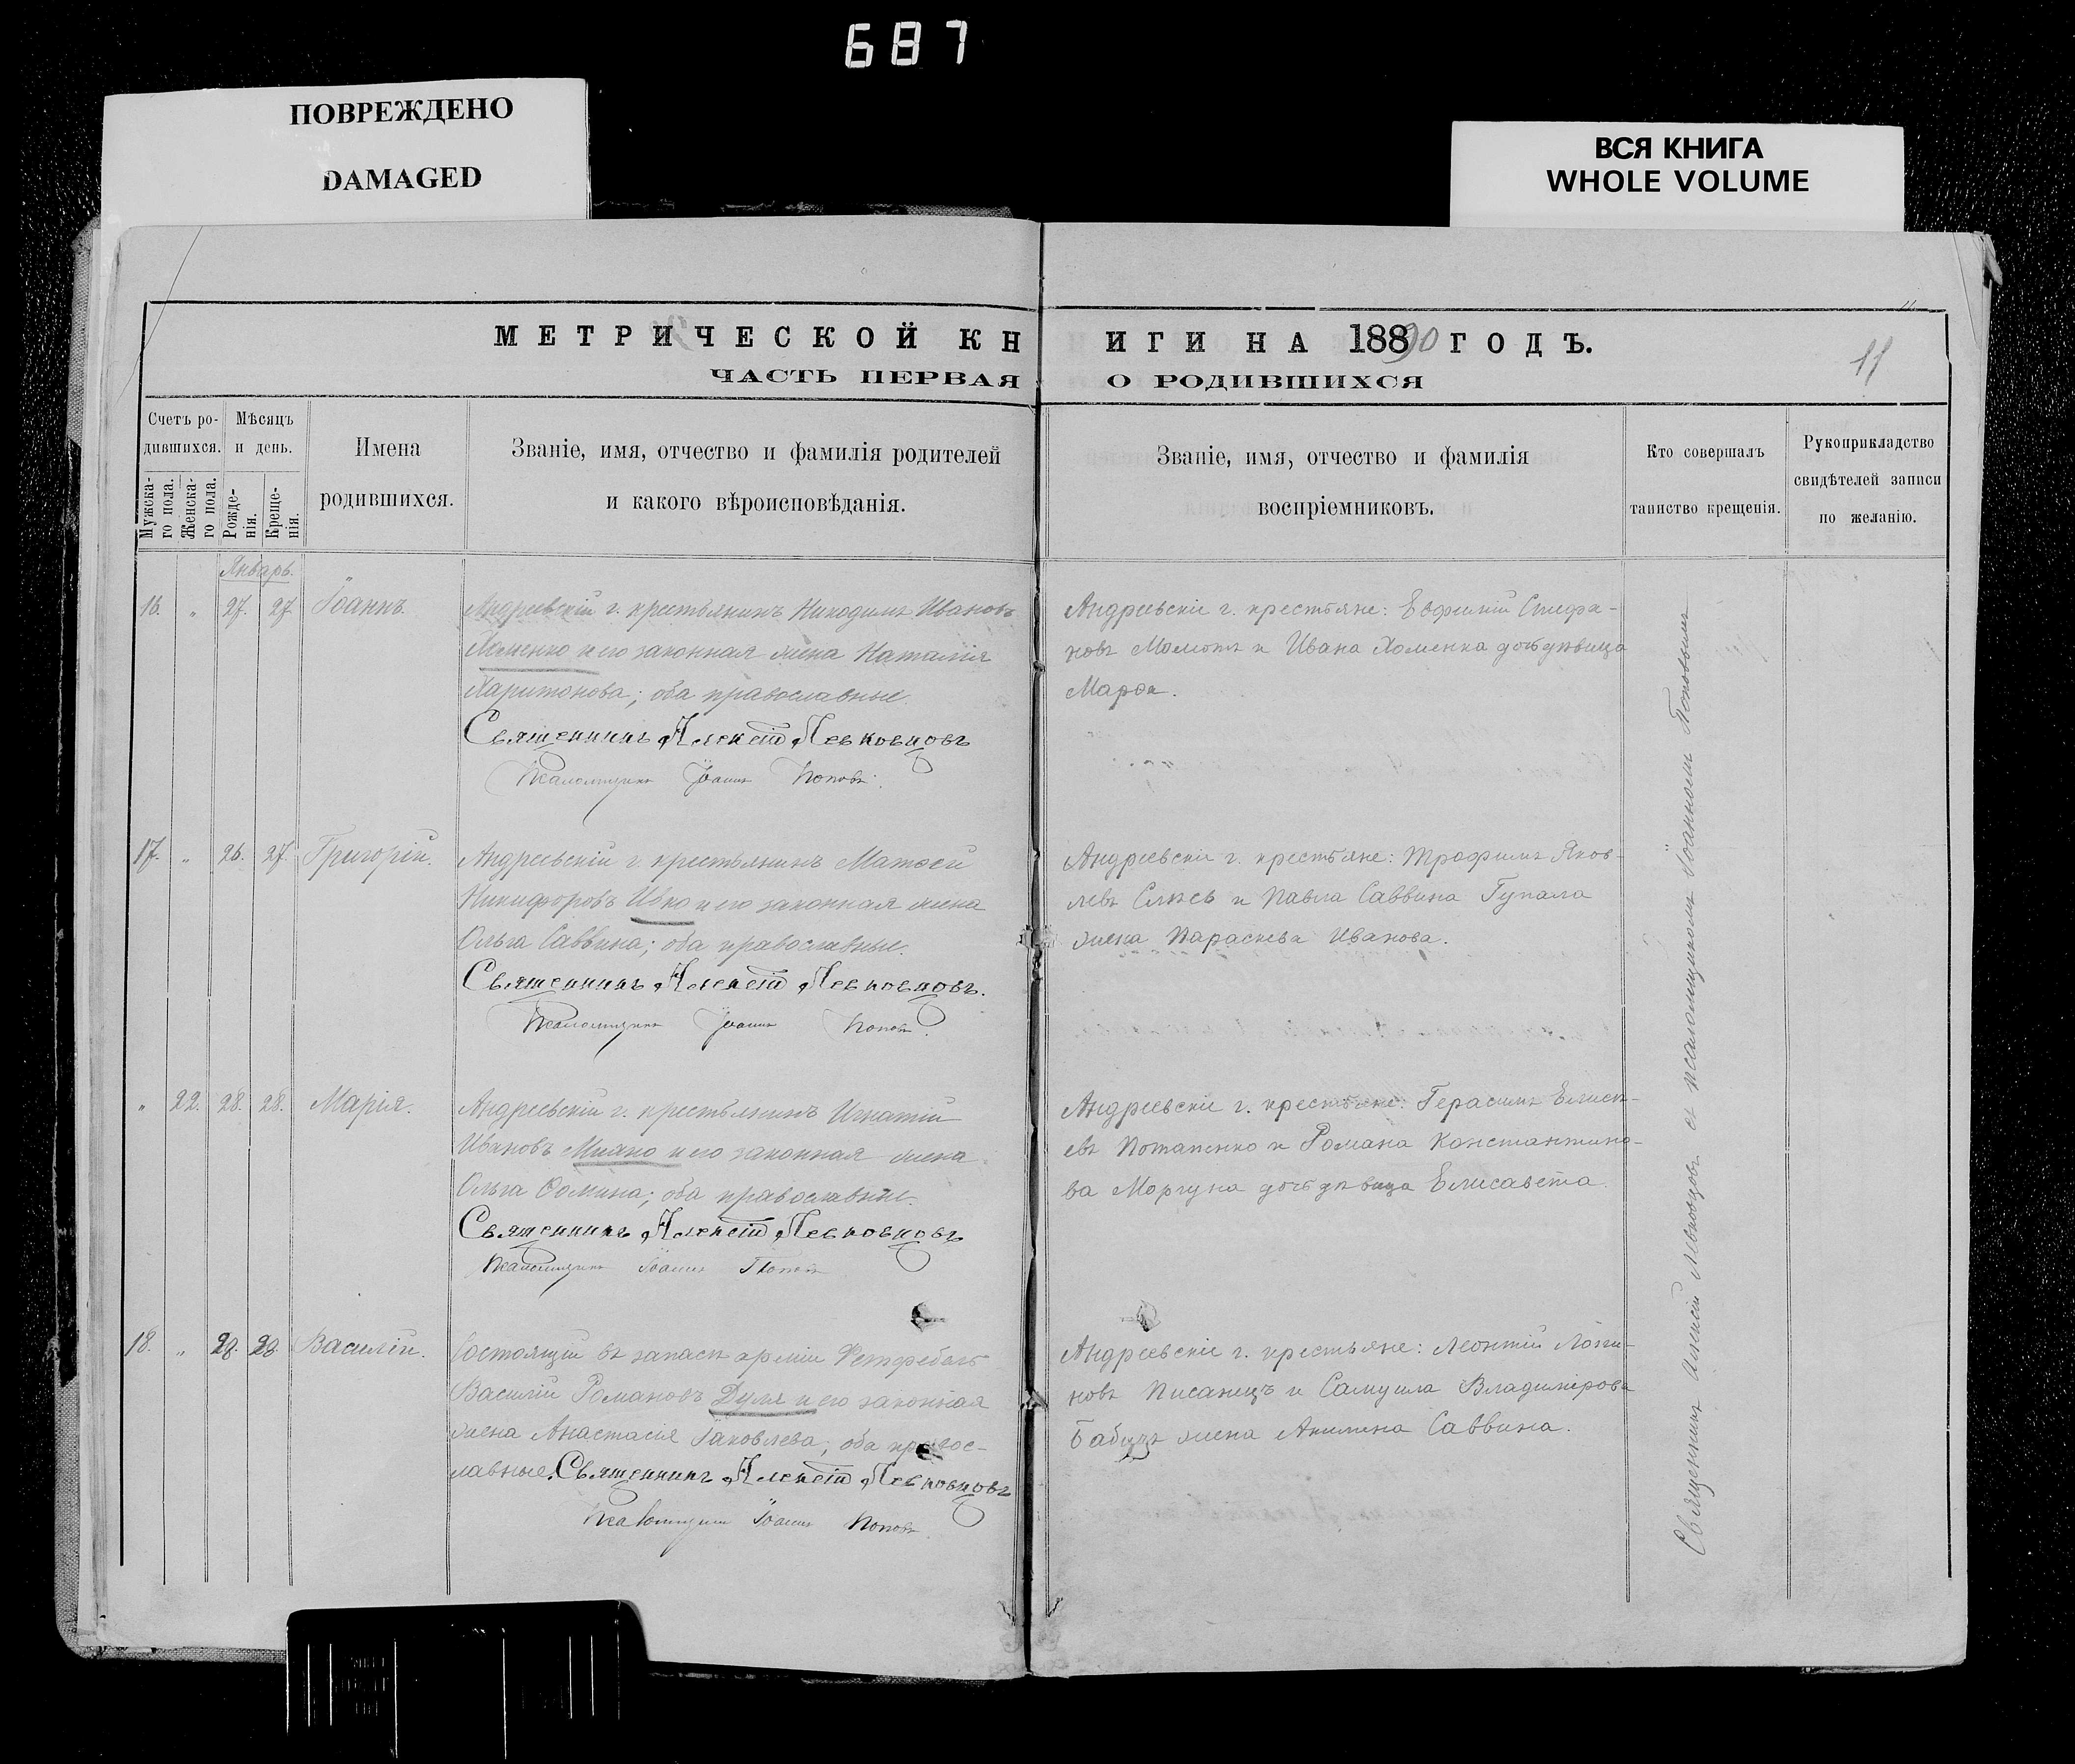 687
ПОВРЕЖДЕНО
DAMAGED
ВСЯ КНИГА
WHOLE VOLUME
МЕТРИЧЕСКОЙ КНИГИ НА 18890 ГОДЪ.
ЧАСТЬ ПЕРВАЯ О РОДИВШИХСЯ
11
Счетъ ро-
дившихся.
Мужска-
го пола.
Женска-
го пола.
Мѣсяцъ
и день.
Рожде-
нія.
Креще-
нія.
Имена
родившихся.
Званіе, имя, отчество и фамилія родителей
и какого вѣроисповѣданія.
Званіе, имя, отчество и фамилія
воспріемниковъ.
Кто совершалъ
таинство крещенія.
Рукоприкладство
свидѣтелей записи
по желанію.
Январь.
16. " 27. 27. Іоаннъ.
Андреевскій г. крестьянинъ Никодимъ Ивановъ
Хоменко и его законная жена Наталія
Харитонова; оба православные.
Священникъ Алексій Левковцовъ
Псаломщикъ Іоаннъ Поповъ.
Андреевскіе г. крестьяне: Евфимій Стефа-
новъ Момотъ и Ивана Хоменка дочь дѣвица
Марѳа.
17. " 26. 27. Григорій.
Андреевскій г. крестьянинъ Матѳей
Никифоровъ Ивко и его законная жена
Ольга Саввина; оба православные.
Священникъ Алексій Левковцовъ.
Псаломщикъ Іоаннъ Поповъ.
Андреевскіе г. крестьяне: Трофимъ Яков-
левъ Слюсь и Павла Саввина Гупала
жена Параскева Иванова.
" 22. 28. 28. Марія.
Андреевскій г. крестьянинъ Игнатій
Ивановъ Мияно и его законная жена
Ольга Ѳомина; оба православные.
Священникъ Алексій Левковцовъ
Псаломщикъ Іоаннъ Поповъ
Андреевскіе г. крестьяне: Герасимъ Елисѣ-
евъ Потапенко и Романа Константино-
ва Моргуна дочь дѣвица Елисавета.
18. " 28. 28. Василій.
Состоящій въ запасѣ арміи Фельдфебель
Василій Романовъ Дуля и его законная
жена Анастасія Іаковлева; оба правос-
лавные. Священникъ Алексій Левковцовъ
Псаломщикъ Іоаннъ Поповъ.
Андреевскіе г. крестьяне: Леонтій Логи-
новъ Писанецъ и Самуила Владимірова
Бабича жена Акилина Саввина.
Священникъ Алексій Левковцовъ съ псаломщикомъ Іоанномъ Поповымъ